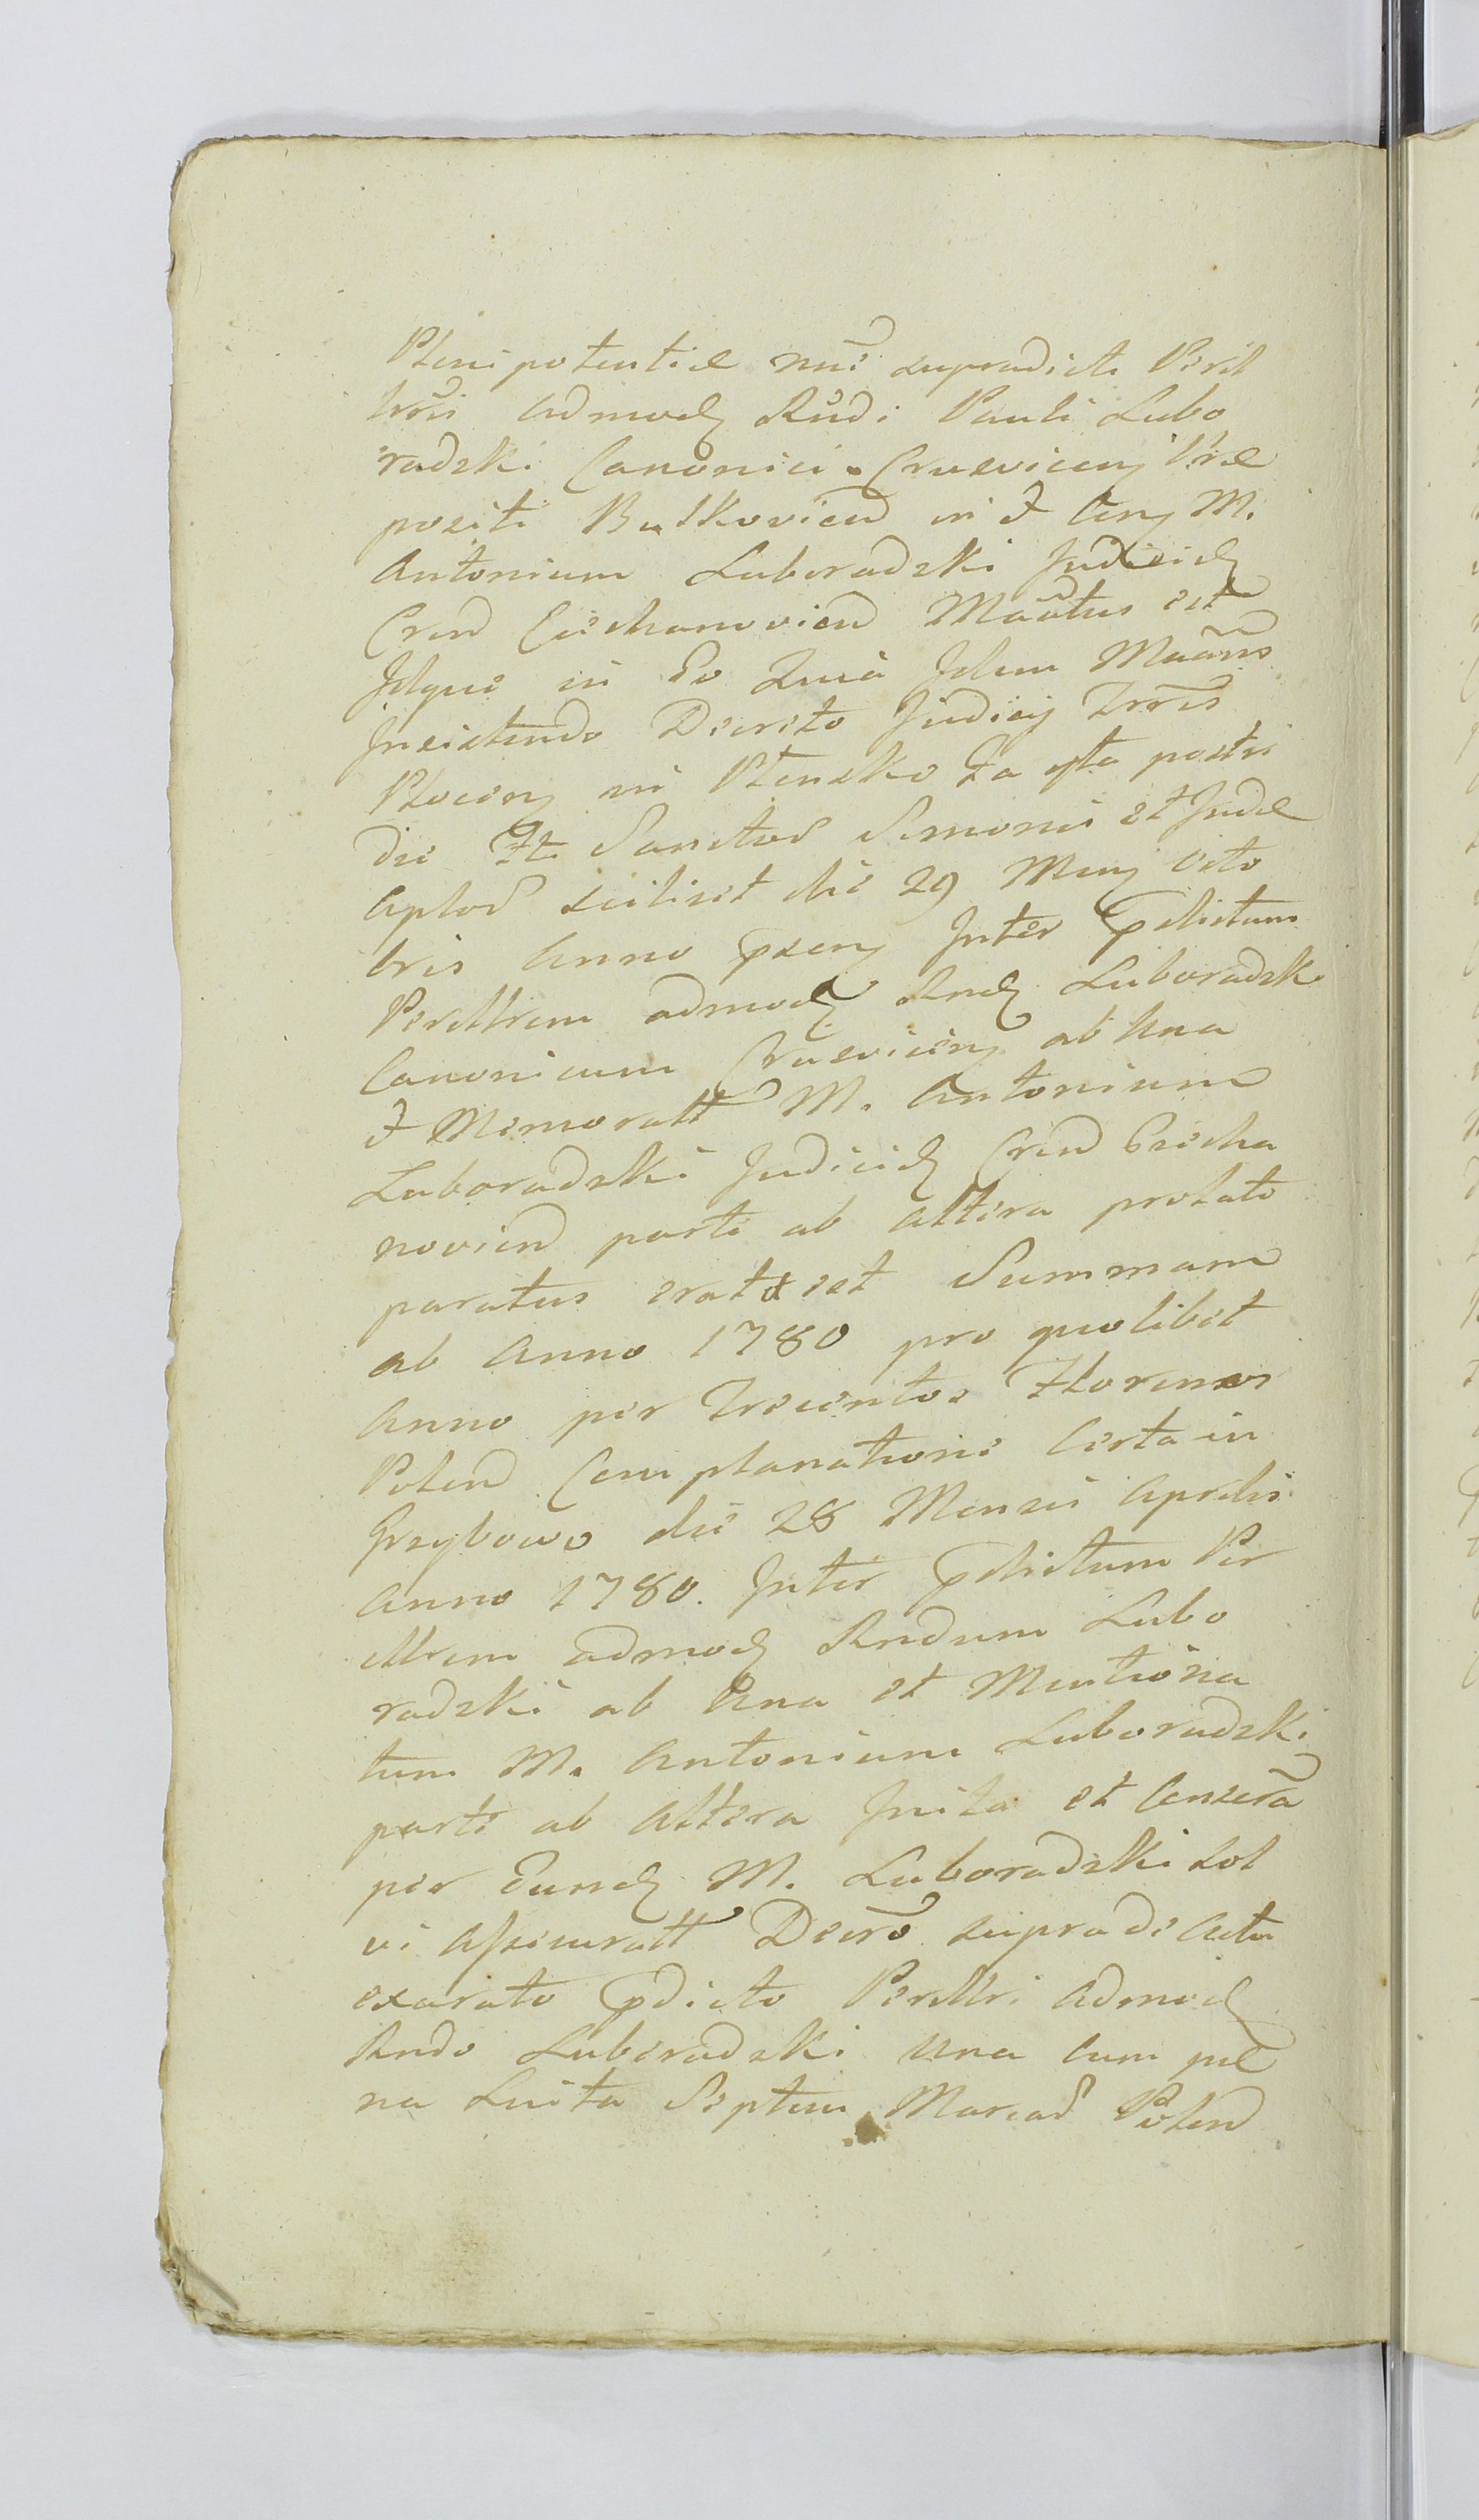 Plenipotentiæ nñe supradicti Peril
lŕis admod Rñdi Pauli Lubo
radzki Canonici Crusvicen Præ
positi Bulkovien in et Gen M.
Antonium Luboradzki Judicid
Cren Ciechanovien Maatus est
Idque in Eo Quia Idem Maans
Insistendo Decreto Judicij Trris
Plocen in Plensko Fa 4ta postri
die Fti Sanctor Simonis et Judæ
Aplor scilicet die 29 Mens Octo
bris Anno psen Inter pdictum
Perillrem admod Rnd Luboradzk
Canonicum Crusvicen ab una
et Memoratt M. Antonium
Luboradzki Judicid Cren Ciecha
novien parte ab altera prolato
paratus erat et est Summam
ab Anno 1780 pro quolibet
Anno per Trecentos Florenos
Polen Complanatione Certa in
Grzybowo die 28 Mensis Aprilis
Anno 1780. Inter pdictum Per
illrem admod Rndum Lubo
radzki ab una et Mentiona
tum M. Antonium Luboradzki
parte ab altera Inita et Censera
per Eund M. Luboradzki sol
vi Assecuratt Decro supra de Actu
exarato pdicto Perillri admod
Rndo Luboradzki una cum pæ
na Luita Septem Marcar Polen